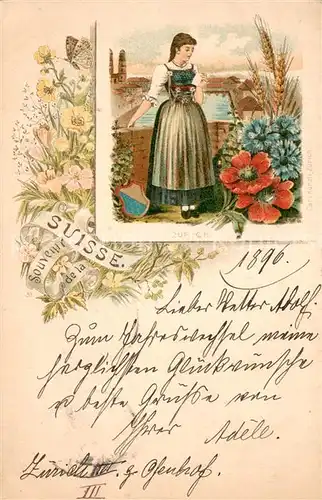 ZÜRICH
Souvenir de la
SUISSE.
1896.
Lieber Vetter Adolf.
Zum Jahreswechsel meine
herzlichsten Glückwünsche
u beste Grüsse von
Ihrer Adèle.
Zürich III. z. Ofenhof.
III